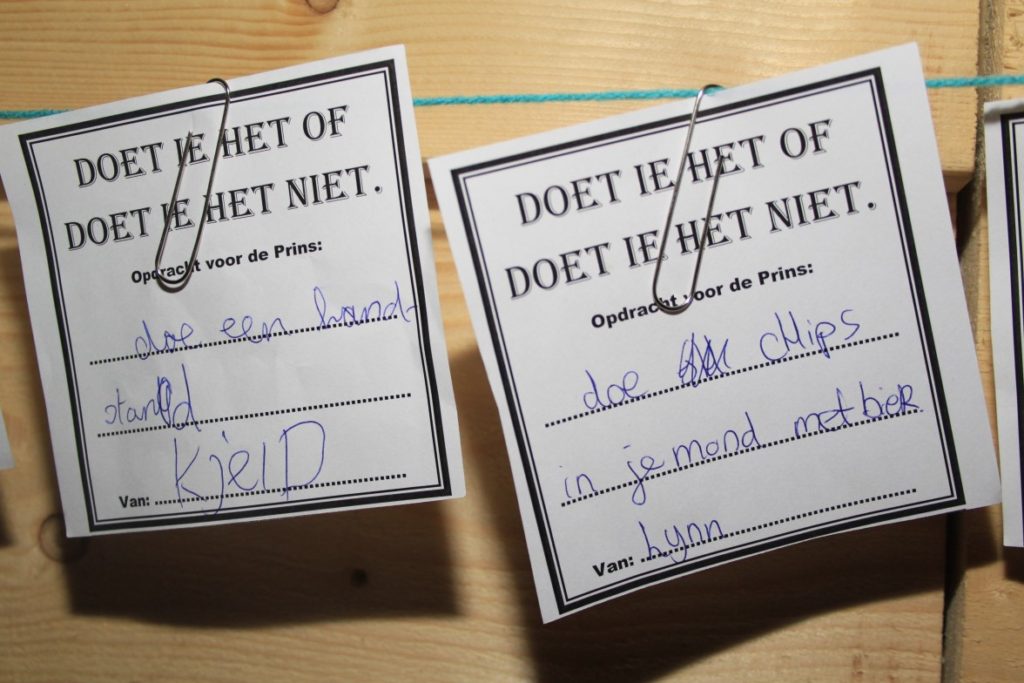 DOET IE HET OF
DOET IE HET NIET.
Opdracht voor de Prins:
doe een hand-
stand
Van: KjelD
DOET IE HET OF
DOET IE HET NIET.
Opdracht voor de Prins:
doe chips
in je mond met bier
Van: Lynn